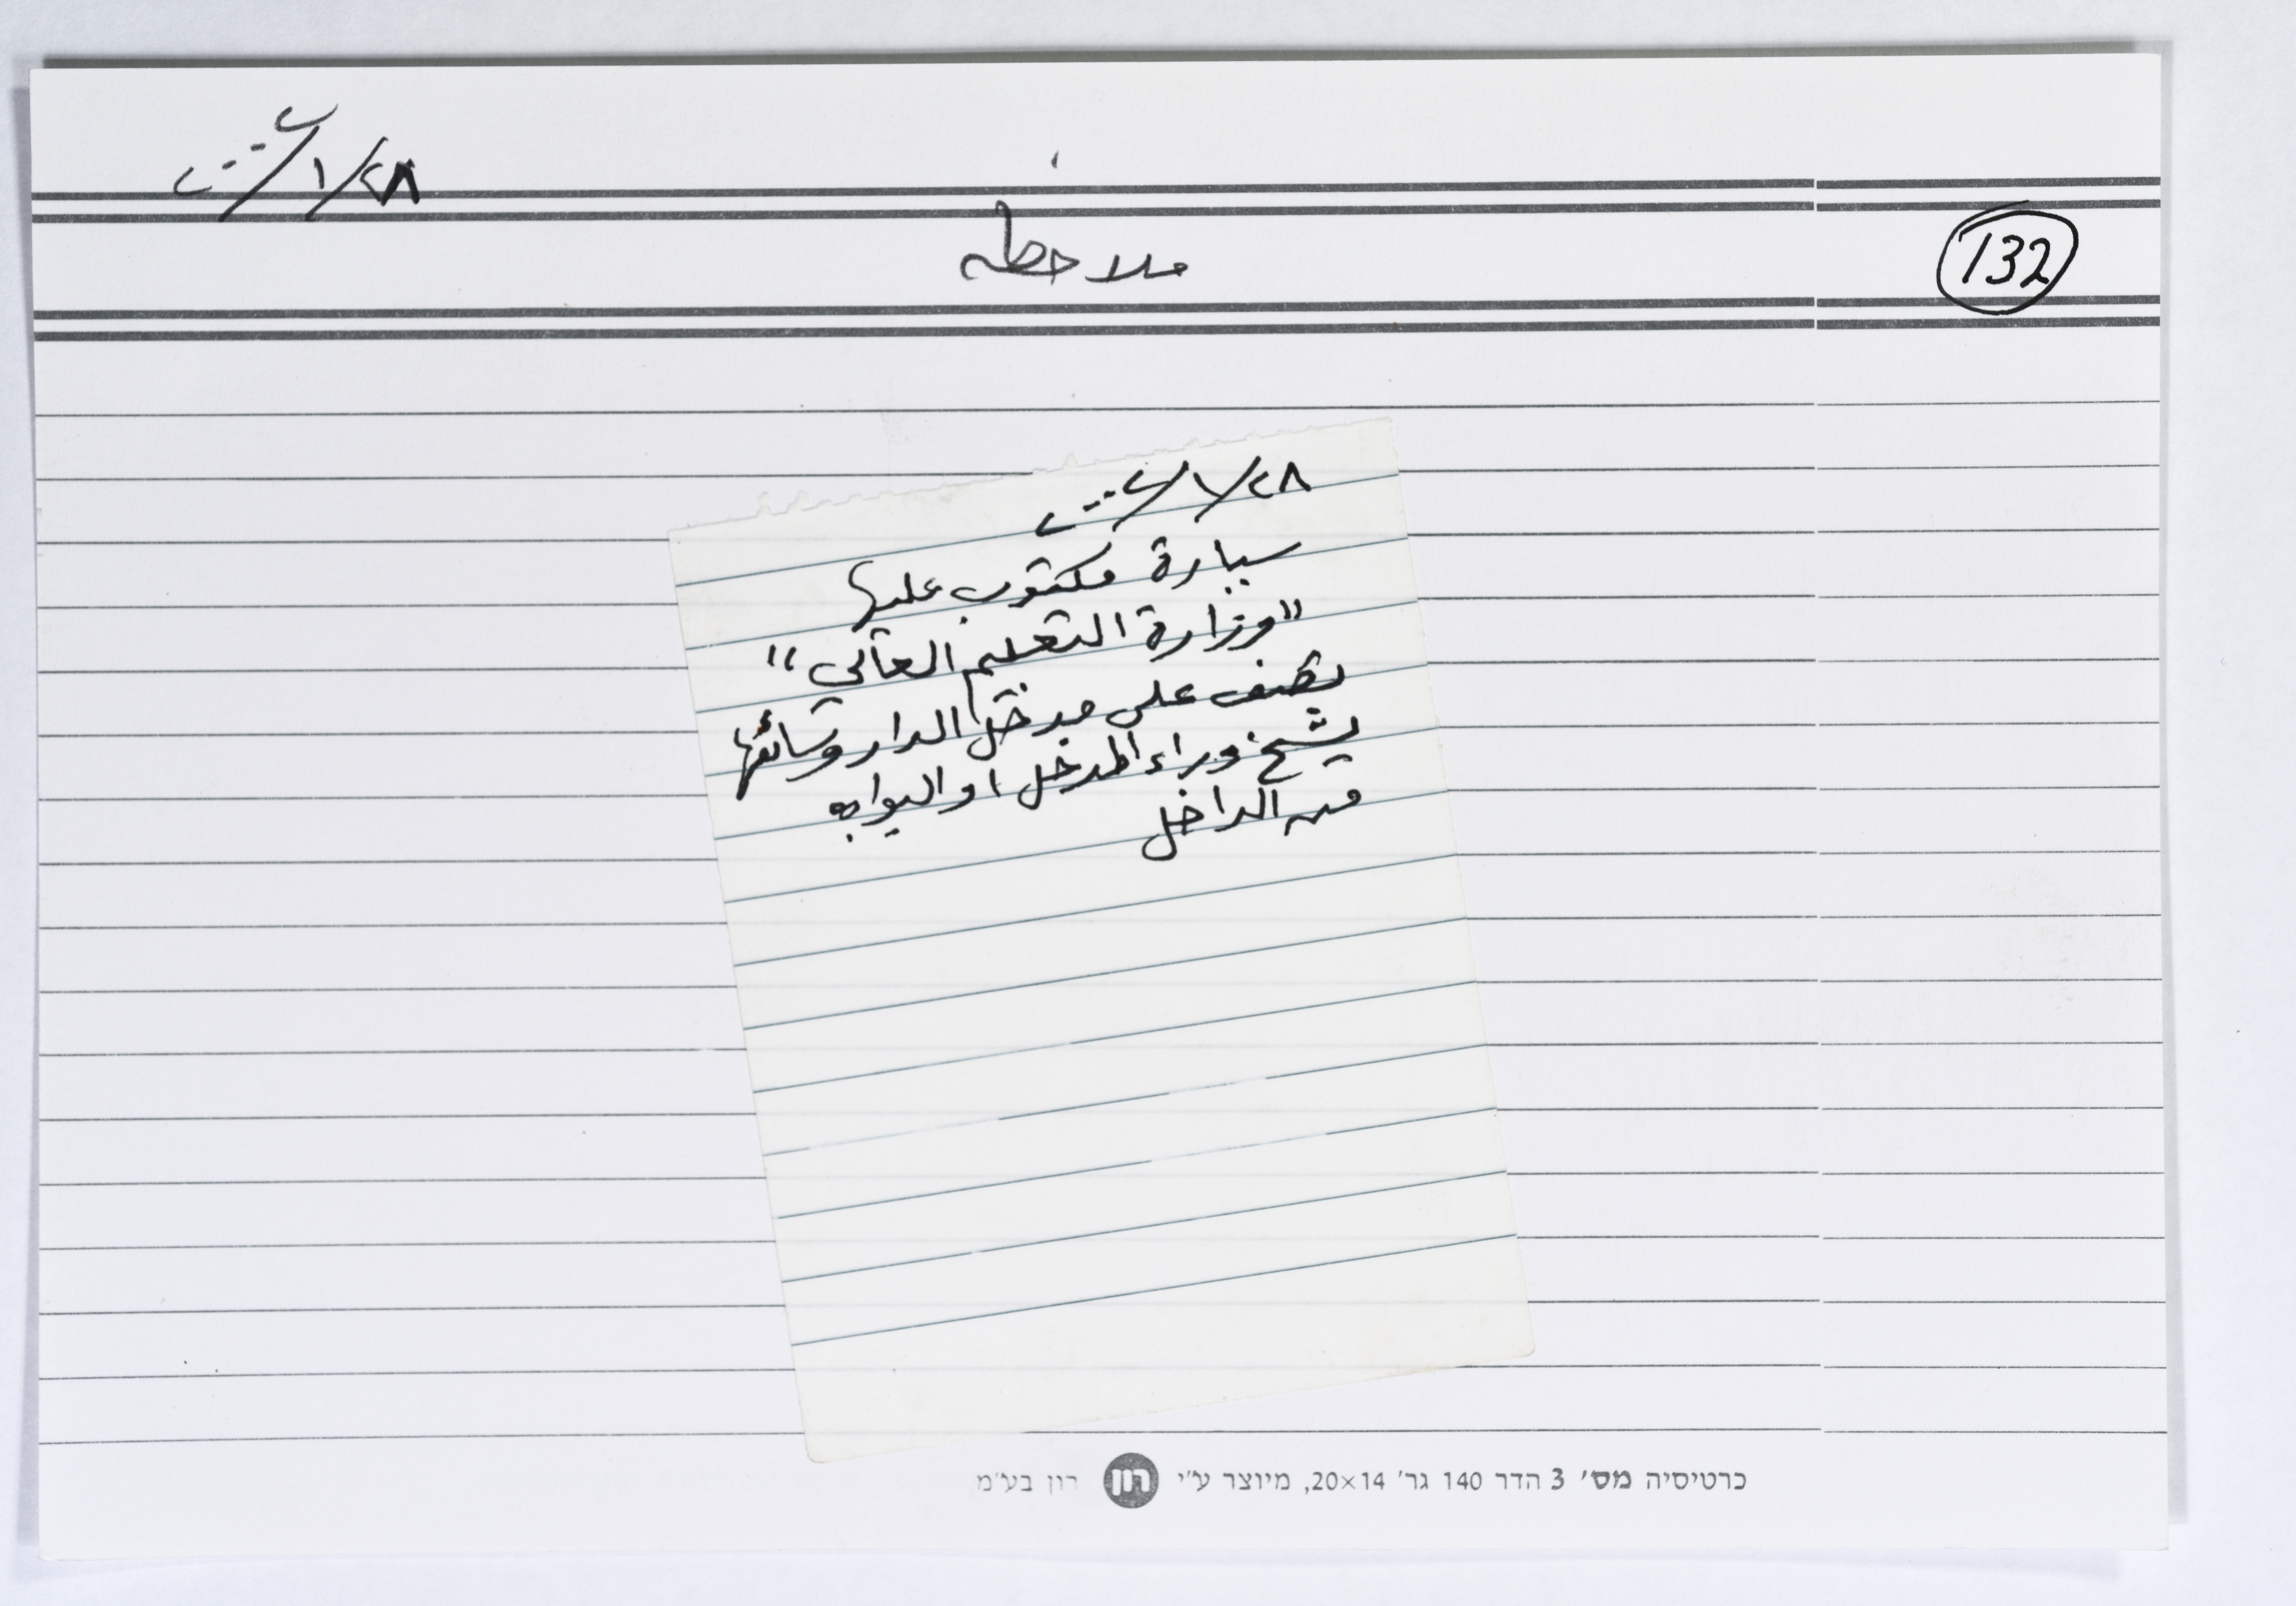 ٢٨/١/٢٠٠٤
ملاحظه
132
٢٨/١/٢٠٠٤
سيارة مكتوب عليها
"وزارة التعليم العالي"
تصف على مدخل الدار وسائقها
يشخ وراء المدخل او البوابه
من الداخل
כרטיסיה מס׳ 3 הדר 140 גר׳ 20×14, מיוצר ע״י רון רון בע״מ